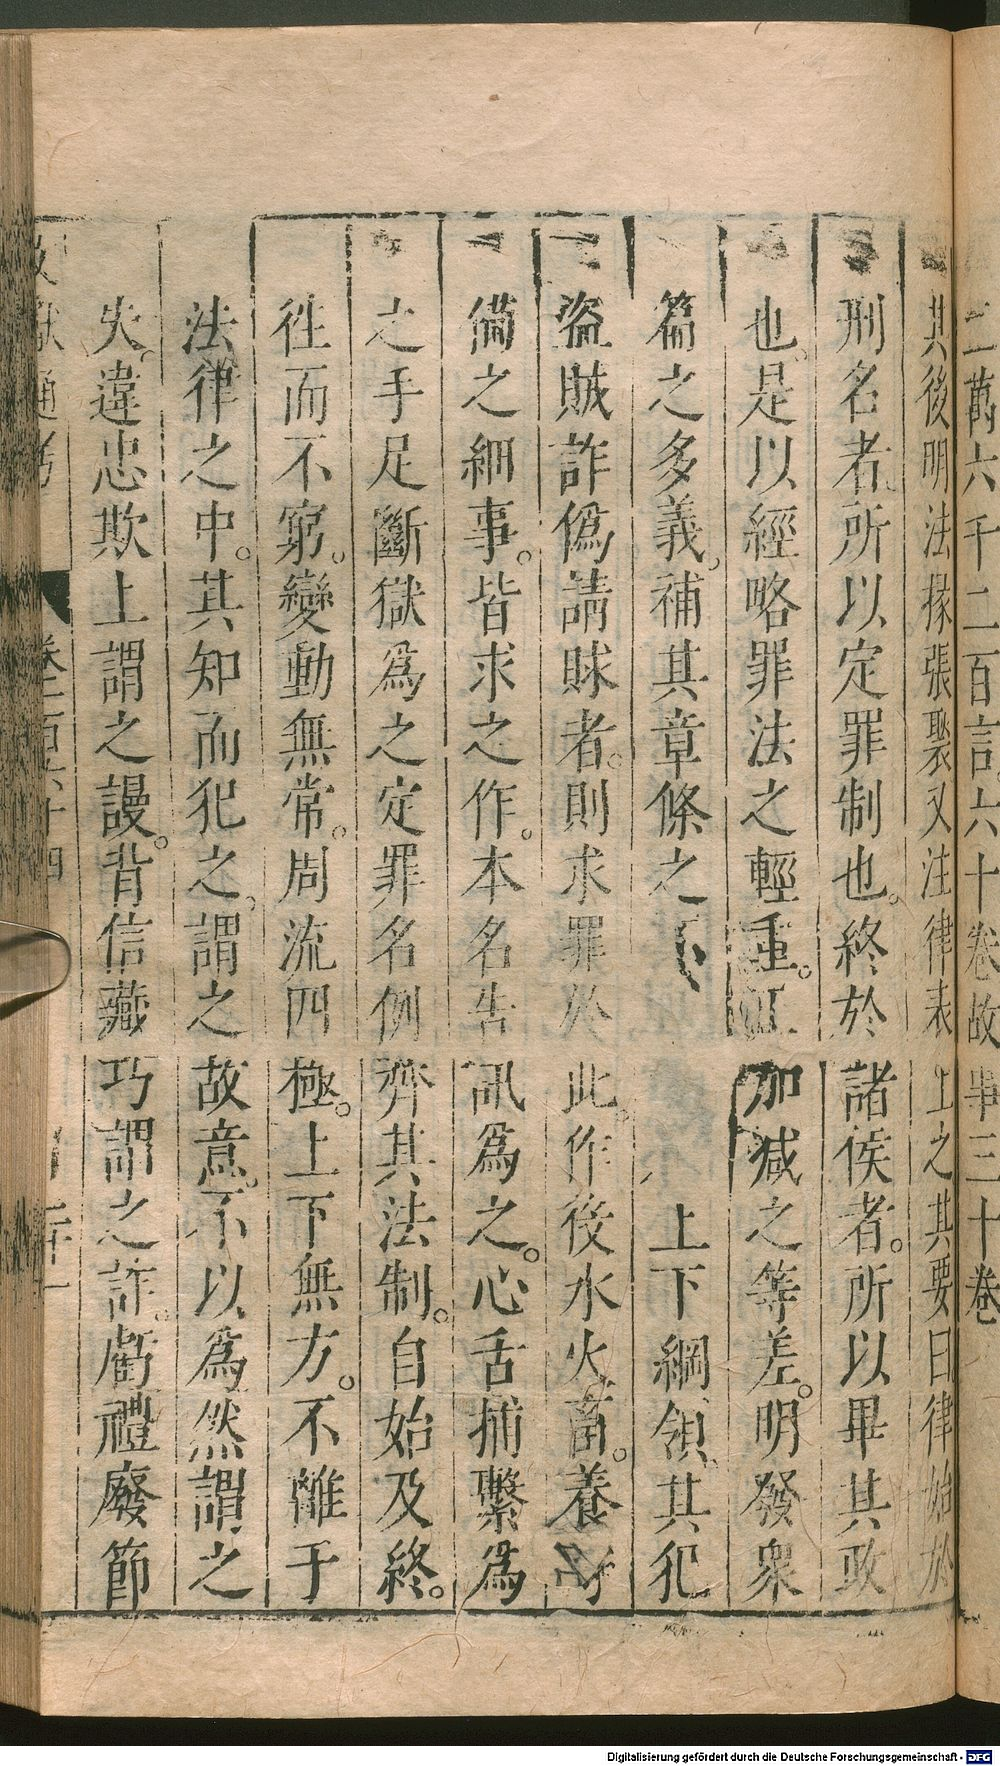 二萬六千二百言六十卷故事三十卷
其後明法掾張裴又注律表上之其要曰律始於
刑名者所以定罪制也。終於諸侯者。所以畢其政
也。是以經略罪法之輕重。正加減之等差。明發衆
篇之多義。補其章條之 上下綱領其犯
盜賊詐偽請賕者。則求罪於此。作役水火畜。養
備之細事。皆求之作。本名告訊為之。心舌捕繫為
之手足斷獄為之定罪名例齊其法制。自始及終。
徃而不窮。變動無常。周流四極。上下無方。不離于
法律之中。其知而犯之。謂之故意。不以為然謂之
失。違忠欺上謂之謾。背信藏巧謂之詐。虧禮廢節
文獻通考 卷一百六十四 二十一
Digitalisierung gefördert durch die Deutsche Forschungsgemeinschaft - DFG